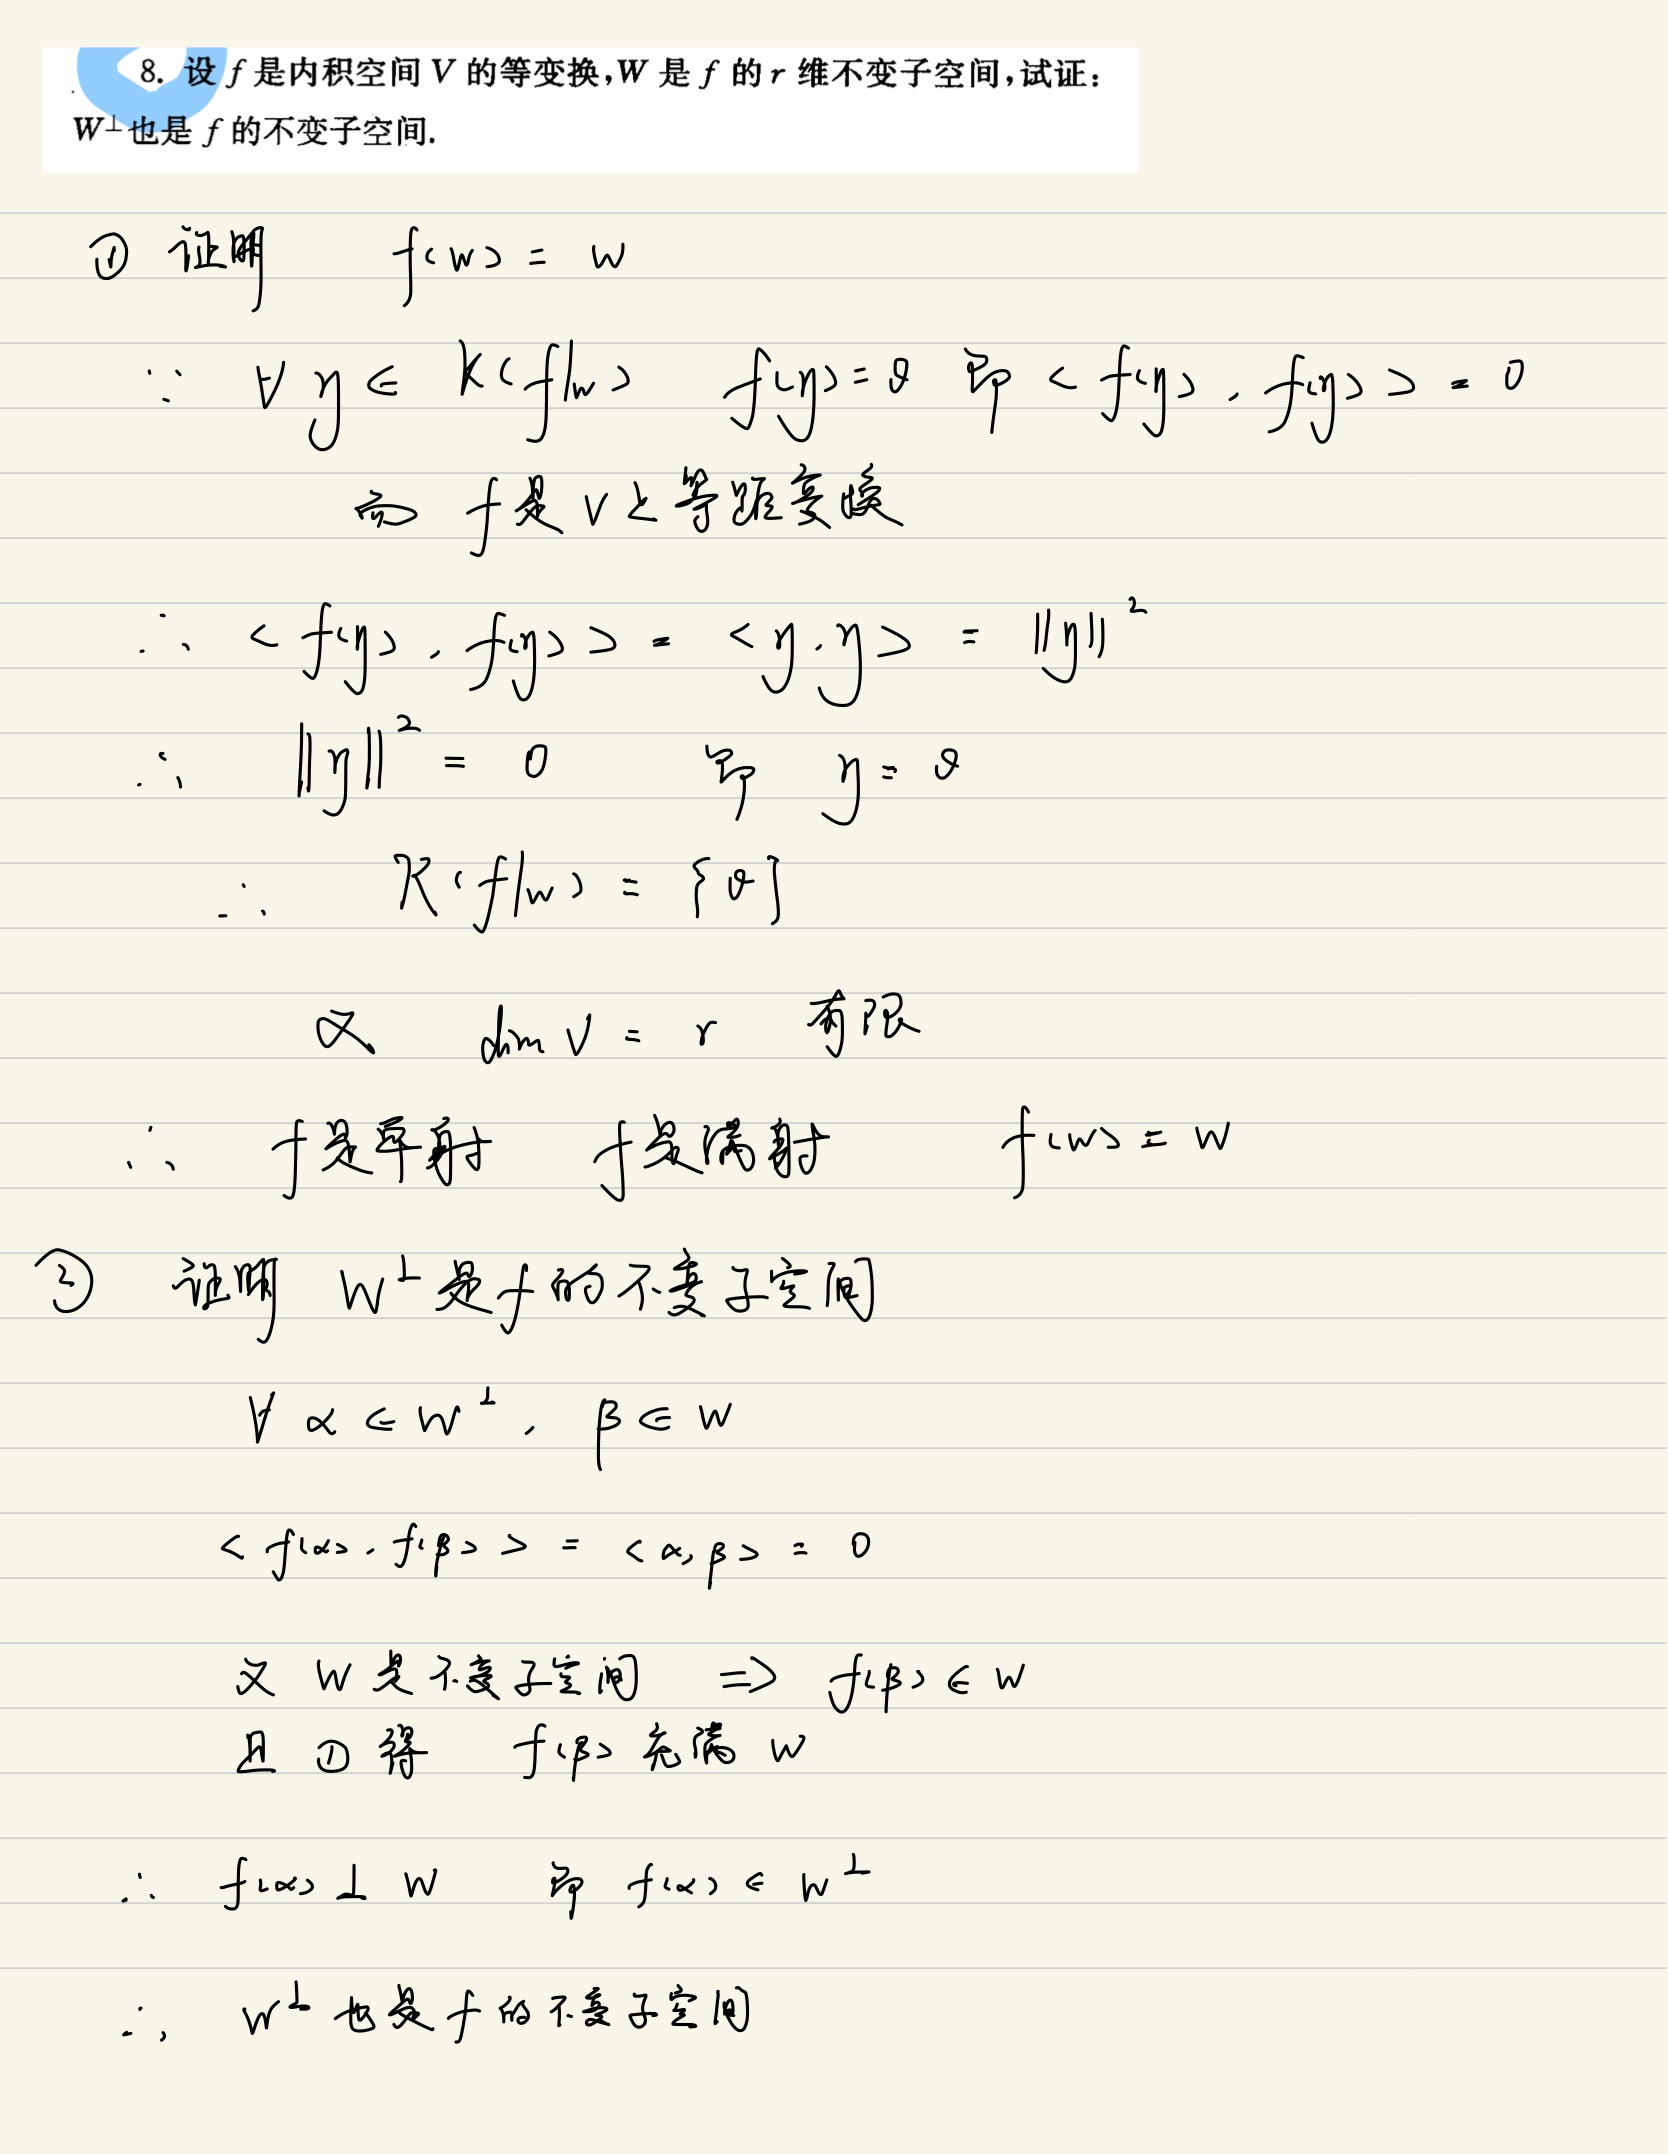 8. 设 f 是内积空间 V 的等变换,W 是 f 的 r 维不变子空间,试证:
W⊥也是 f 的不变子空间.
① 证明 f(W) = W
∵ ∀ η ∈ K(f|w) f(η) = θ 即 < f(η), f(η) > = 0
而 f是V上等距变换
∴ < f(η), f(η) > = < η, η > = ||η||²
∴ ||η||² = 0 即 η = θ
∴ K(f|w) = {θ}
又 dim V = r 有限
∴ f是单射 f是满射 f(W) = W
② 证明 W⊥是f的不变子空间
∀ α ∈ W⊥, β ∈ W
< f(α), f(β) > = < α, β > = 0
又 W 是不变子空间 ⇒ f(β) ∈ W
且 ① 得 f(β) 充满 W
∴ f(α) ⊥ W 即 f(α) ∈ W⊥
∴ W⊥ 也是 f 的不变子空间